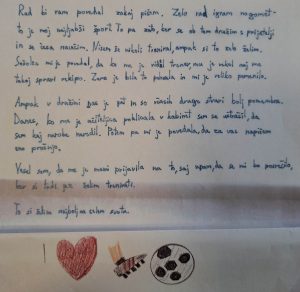 Rad bi vam povedal zakaj pišem. Zelo rad igram nogomet-
to je moj najljubši šport. To pa zato, ker se ob tem družim s prijatelji
in se veca naučim. Nisem še nikoli treniral, ampak si to zelo želim.
Sošolca mi je povedal, da ko me je vidil trener, mu je rekel naj me
takoj spravi v ekipo. Zame je bila to pohvala in mi je veliko pomenila.
Ampak v družini nas je pet in so včasih druge stvari bolj pomembne.
Danes, ko me je učiteljica poklicala v kabinet sem se ustrašil, da
sem kaj narobe naredil. Potem pa mi je povedala, da za vas napišem
eno prošnjo.
Vesel sem, da me je mami prijavila na to, saj upam, da se mi bo posrečilo,
ker si tudi jaz želim trenirati.
To si želim najbolj na celem svetu.
I